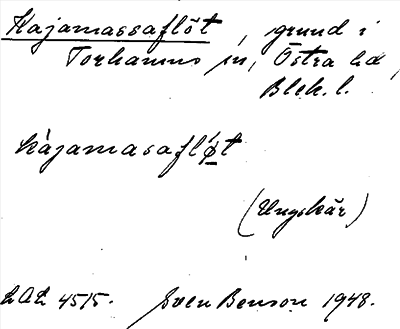 Kajamassaflöt, grund i
Torhamns sn, Östra hd,
Blek. l.
kàjamasaflǿ̱t
(Ungskär)
LAL 4515. Sven Benson 1948.